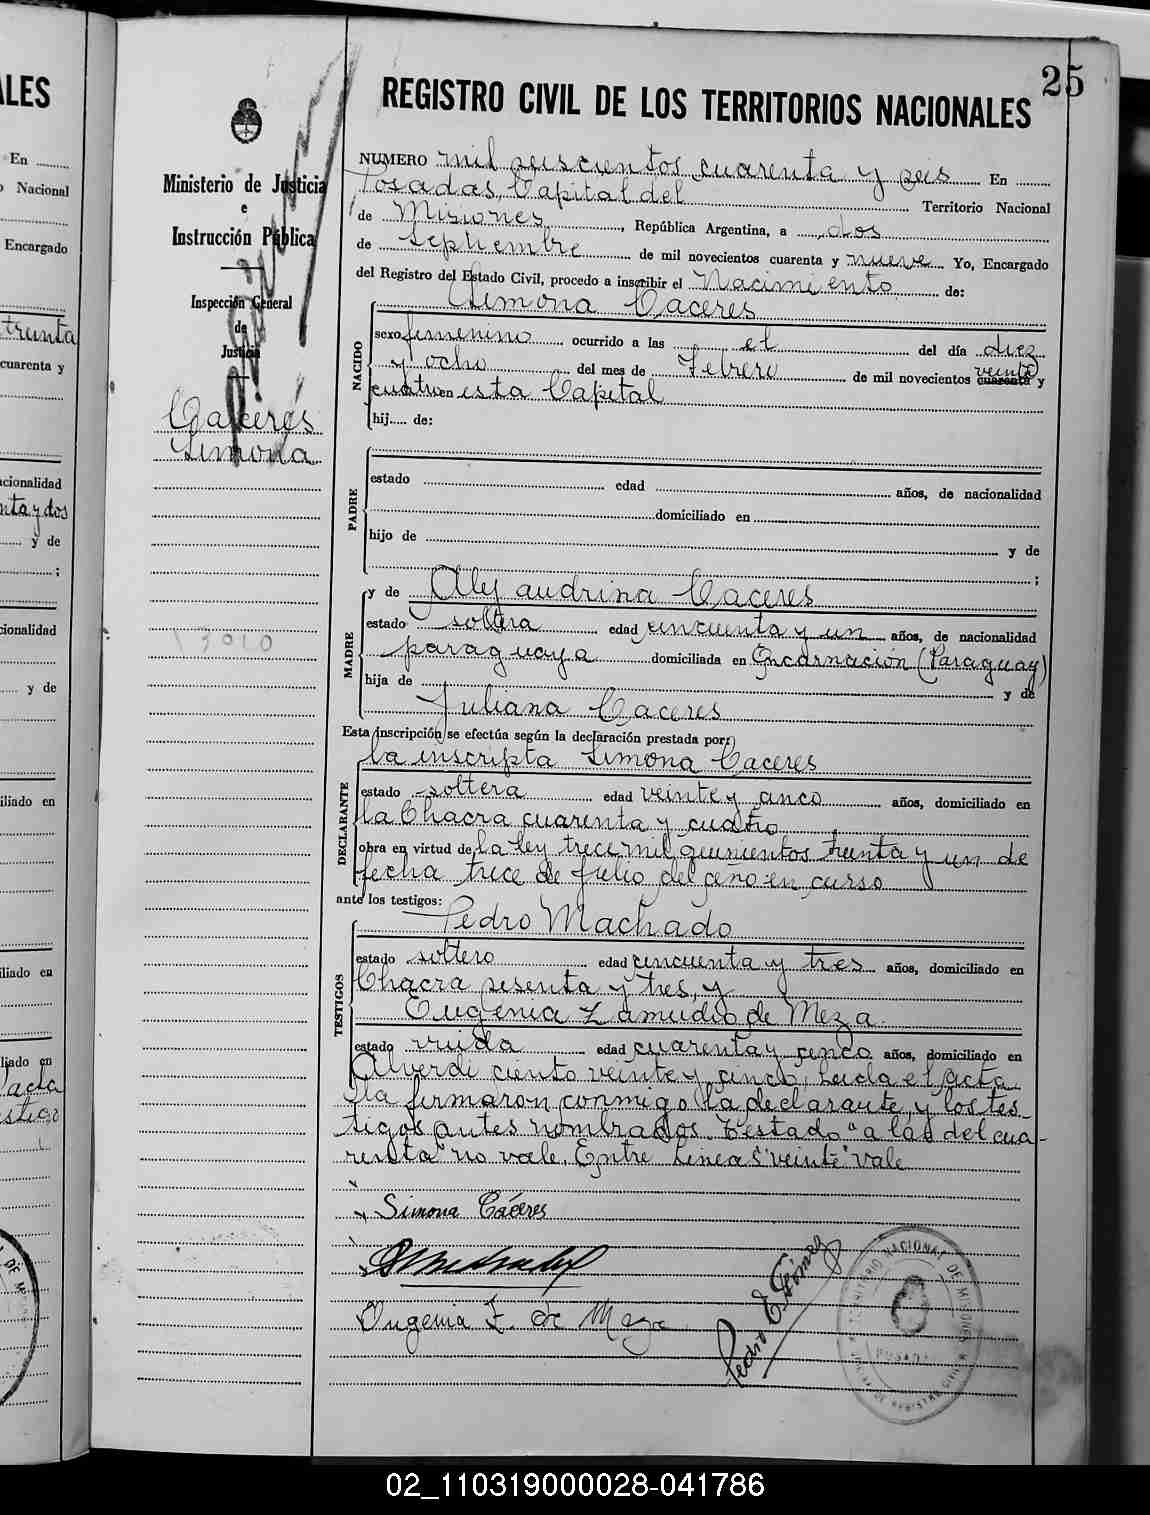 25
REGISTRO CIVIL DE LOS TERRITORIOS NACIONALES
Ministerio de Justicia
e
Instrucción Pública
Inspección General
de
Justicia
Caceres
Simona
NUMERO mil seiscientos cuarenta y seis En
Posadas, Capital del Territorio Nacional
de Misiones, República Argentina, a dos
de Septiembre de mil novecientos cuarenta y nueve Yo, Encargado
del Registro del Estado Civil, procedo a inscribir el Nacimiento de:
Simona Caceres
NACIDO
sexo femenino ocurrido a las el del día diez
y ocho del mes de Febrero de mil novecientos cuarenta veinte y
cuatro en esta Capital
hij..... de:
PADRE
estado edad años, de nacionalidad
domiciliado en
hijo de y de
;
MADRE
y de Alejandrina Caceres
estado soltera edad cincuenta y un años, de nacionalidad
paraguaya domiciliada en Encarnación (Paraguay)
hija de y de
Juliana Caceres
Esta inscripción se efectúa según la declaración prestada por:
la inscripta Simona Caceres
DECLARANTE
estado soltera edad veinte y cinco años, domiciliado en
la Chacra cuarenta y cuatro
obra en virtud de la ley trece mil quinientos treinta y un de
fecha trece de Julio del año en curso
ante los testigos:
TESTIGOS
Pedro Machado
estado soltero edad cincuenta y tres años, domiciliado en
Chacra sesenta y tres, y
Eugenia Zamudio de Meza
estado viuda edad cuarenta y cinco años, domiciliado en
Alverdi ciento veinte y cinco, Leida el acta
la firmaron conmigo la declarante y los tes-
tigos antes nombrados. Testado "a las del cua-
renta" no vale. Entre Lineas "veinte" vale
Simona Cáceres
Eugenia Z. de Meza
Pedro E. Gómez
TERRITORIO NACIONAL DE MISIONES
POSADAS
02_110319000028-041786